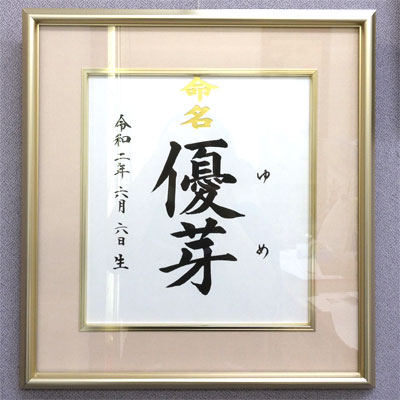 命名
ゆめ
優芽
令和二年六月六日生